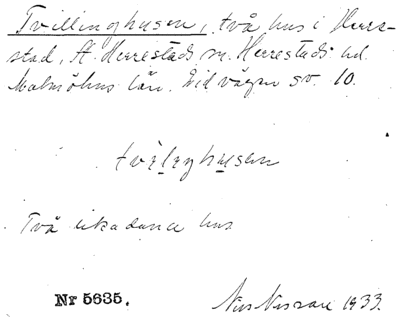 Tvillinghusen, två hus i Herre-
stad, St. Herrestads sn. Herrestads hd.
Malmöhus län. Vid vägen sv. 10.
tvìlinghusen
Två likadana hus
Nr 5635.
Nils Nilsson 1933.